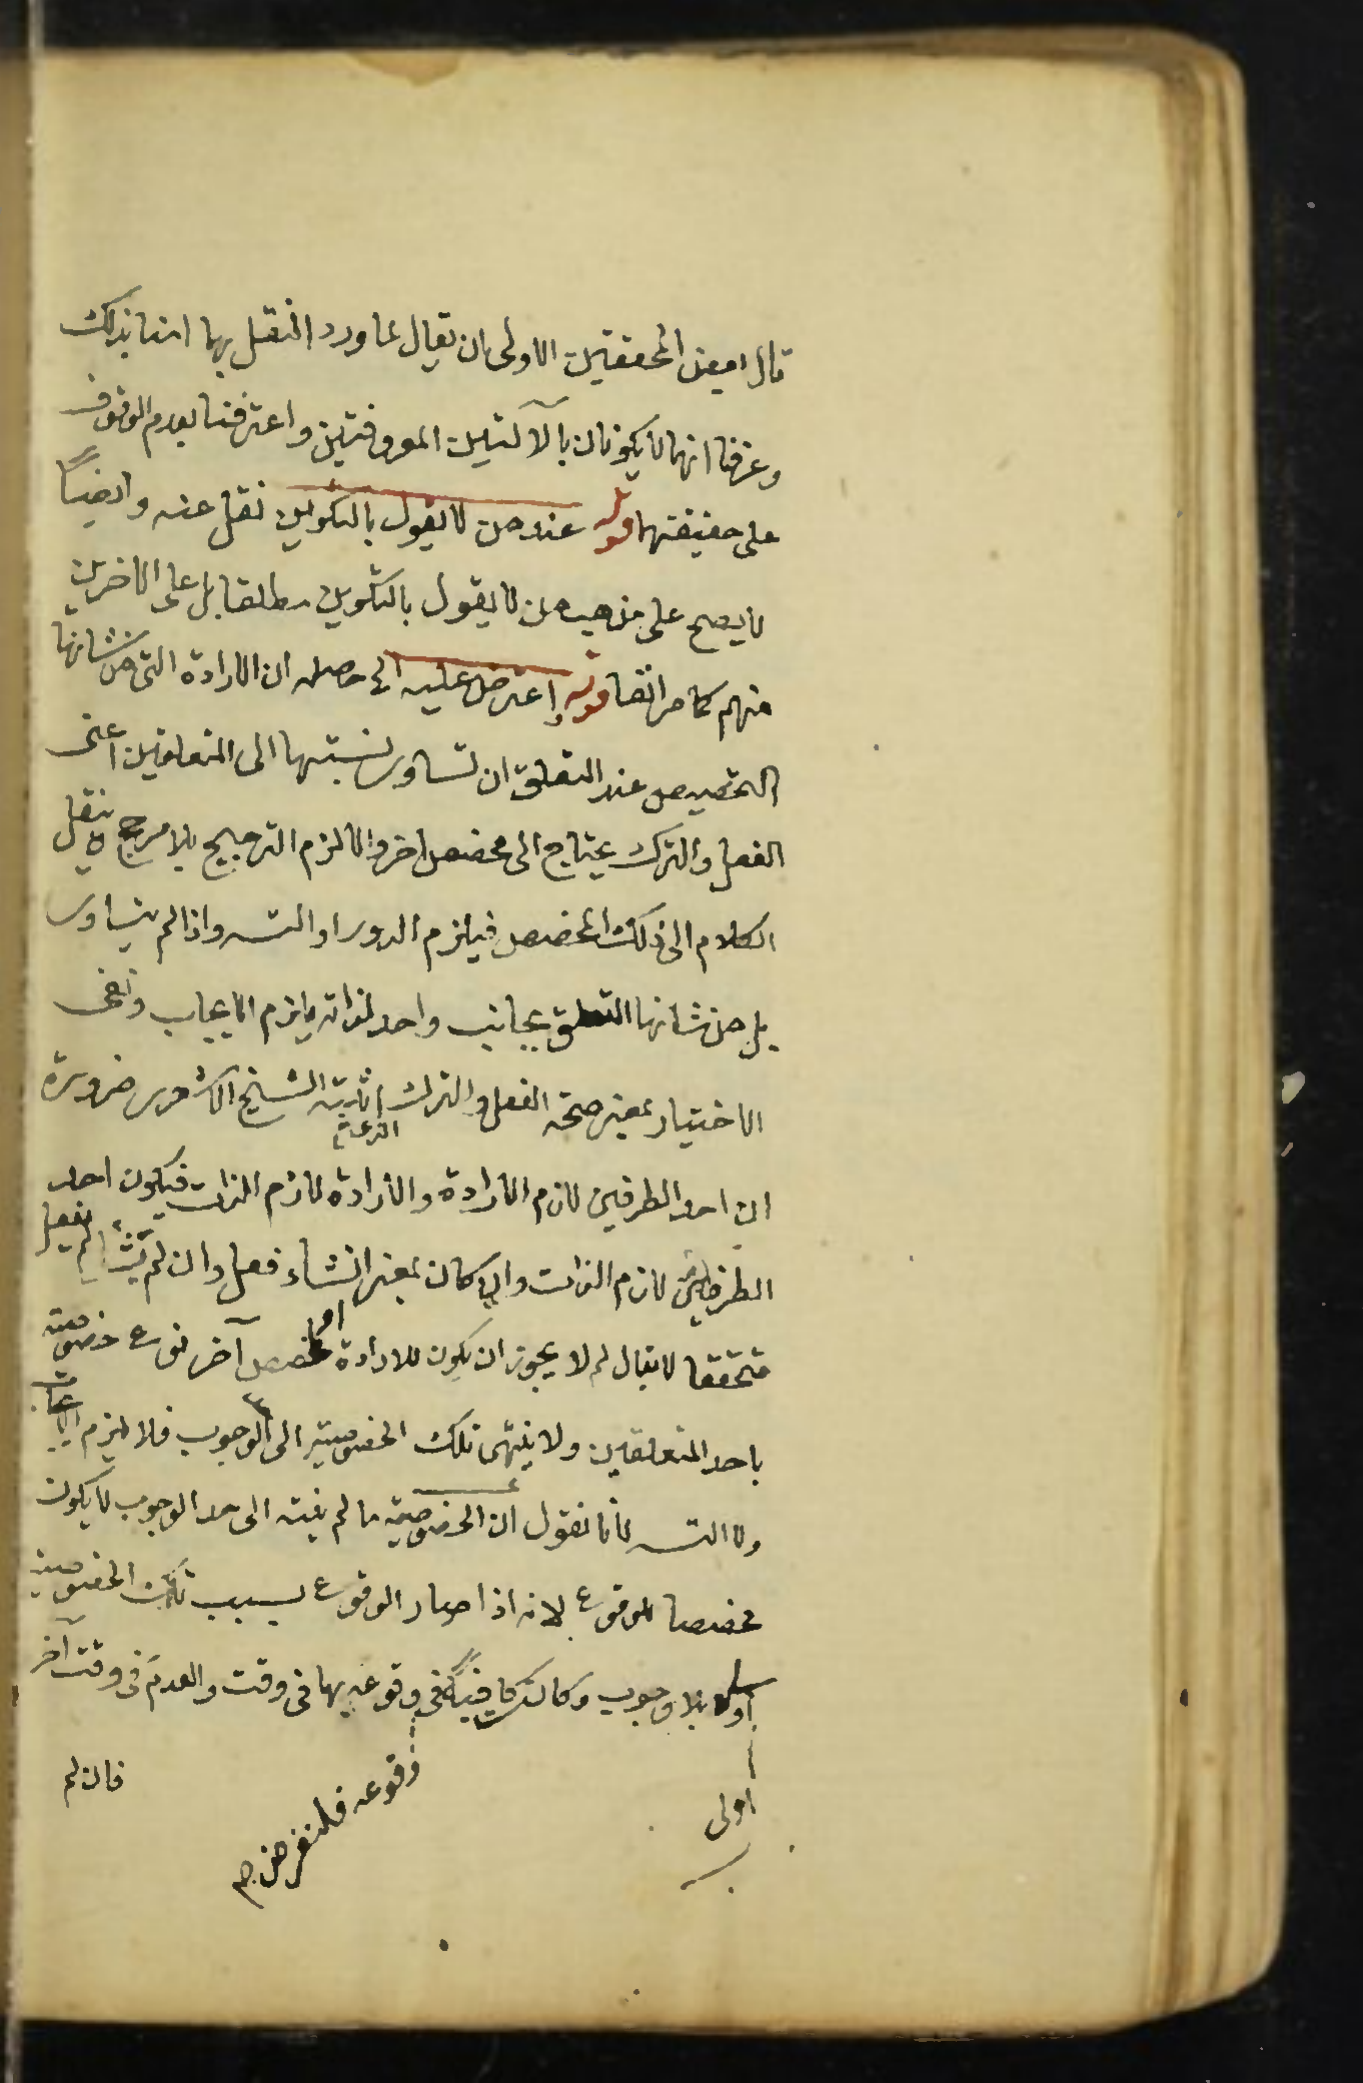 قال بعض المحققين الاولى ان يقال لما ورد النقل بهما امنا بذلك
وعرفنا انهما لا يكونان بالآلتين المعروفتين واعترفنا بعدم الوقوف
على حقيقتهما قوله عند من لا يقول بالتكوين نقل عنه وايضاً
لا يصح على مذهب من لا يقول بالتكوين مطلقا بل على الاخرين
منهم كما مر انفا قوله اعترض عليه الخ حاصله ان الارادة التى من شانها
التخصيص عند التعلق ان تساوى نسبتها الى المتعلقين اعنى
الفعل والترك يحتاج الى مخصص اخر والا لزم الترجيح بلا مرجح ينقل
الكلام الى ذلك المخصص فيلزم الدور او التسـ واذا لم يتساوى
بل من شانها التعلق بجانب واحد لذاته يلزم الايجاب ونفى
الاختيار بمعنى صحة الفعل والترك اثبته الشيخ الاشعرى ضرورة
ان احد الطرفين لازم الارادة والارادة لازم الذات فيكون احد
الطرفين لازم الذات وان كان بمعنى ان شاء فعل وان لم يشأ لم يفعل
متحققا لا يقال لم لا يجوز ان يكون للارادة او لمخصص آخر نوع خصوصية
باحد المتعلقين ولا ينتهى تلك الخصوصية الى الوجوب فلا يلزم الايجاب
ولا التسـ لانا نقول ان الخصوصية ما لم ينته الى حد الوجوب لا يكون
مخصصا للوقوع لانه اذا صار الوقوع بسبب تلك الخصوصية
اولى بلا وجوب وكانت كافيةً فى وقوعه بها فى وقت والعدم فى وقت آخر
اولى
وقوعه فلنفرض
فان لم